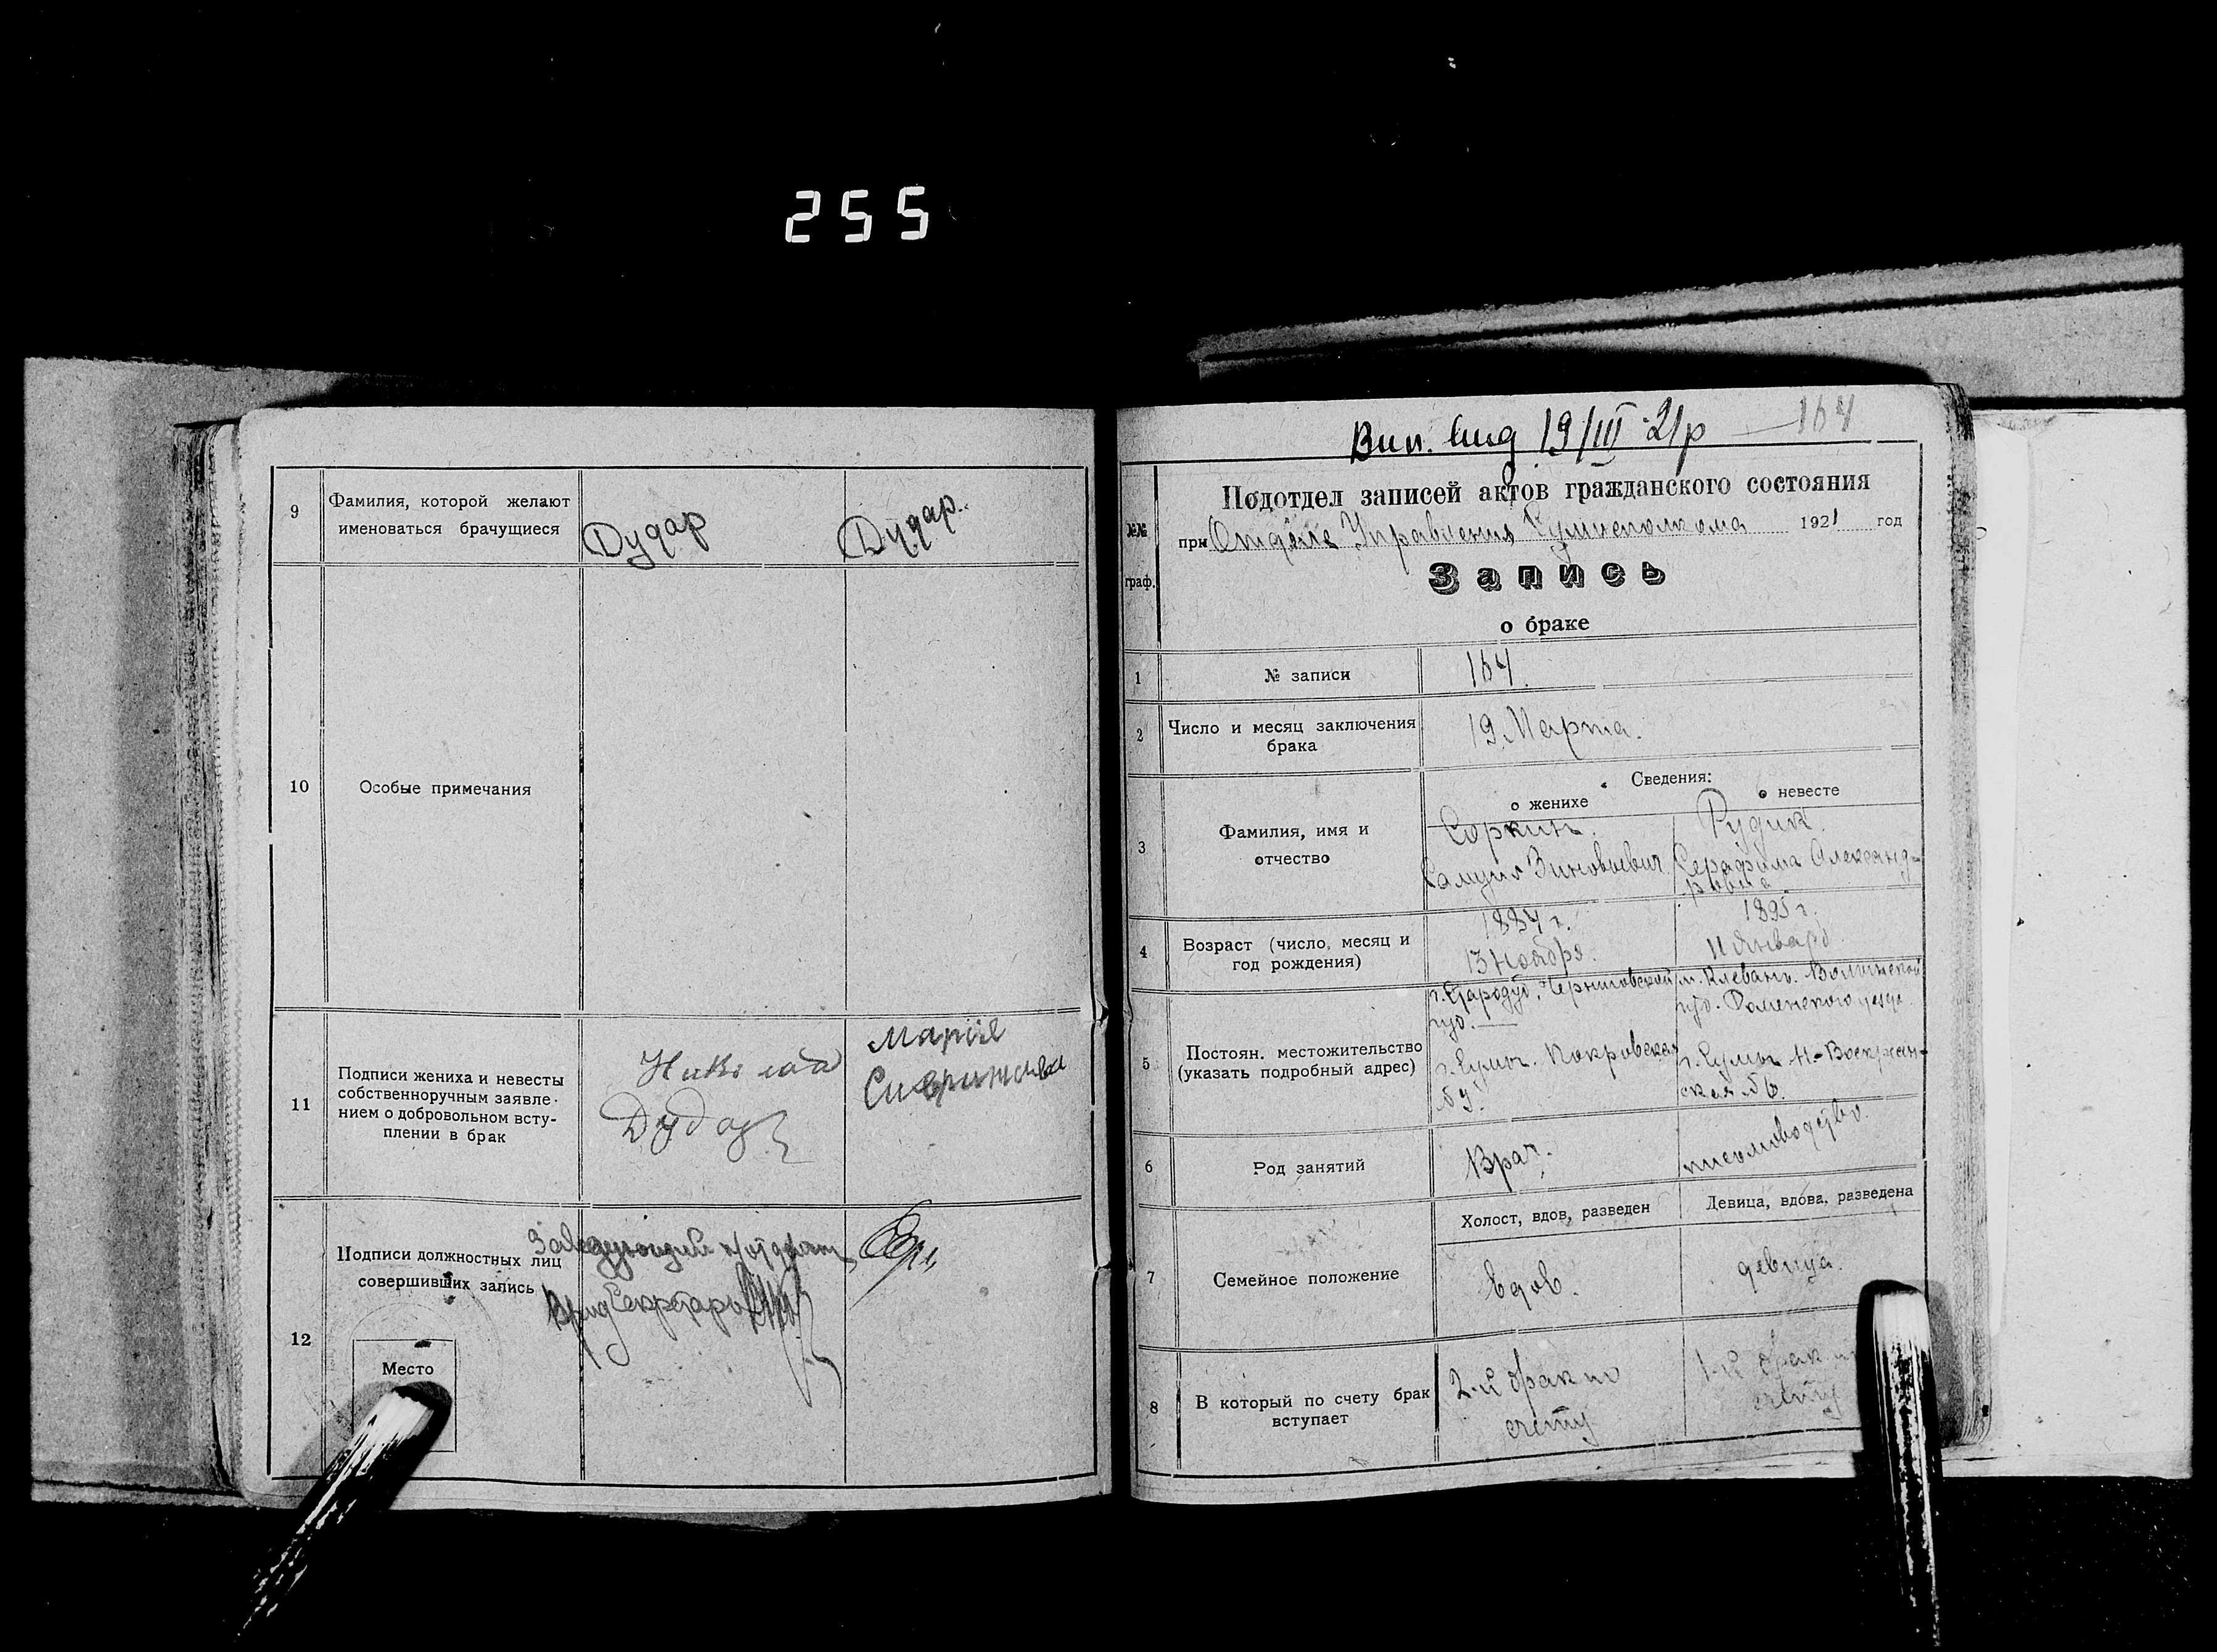 255
9
Фамилия, которой желают
именоваться брачущиеся
Дудар
Дудар.
10
Особые примечания
11
Подписи жениха и невесты
собственноручным заявле-
нием о добровольном всту-
плении в брак
Дудар
Мария
12
Подписи должностных лиц
совершивших запись
Заведующий
Врид Секретарь
Место
Вип. 19/III 21р 164
№№
граф.
Подотдел записей актов гражданского состояния
при Отделе Управления 1921 год
Запись
о браке
1
№ записи
164.
2
Число и месяц заключения
брака
19 Марта.
Сведения:
о женихе
о невесте
3
Фамилия, имя и
отчество
Соркин.
Самуил Зиновьевич
Рудик.
Серафима Александ-
ровна
4
Возраст (число, месяц и
год рождения)
1884 г.
13 Ноября.
1895 г.
11 Января.
5
Постоян. местожительство
(указать подробный адрес)
г. Стародуб, Черниговской
губ.
г. Сумы. Покровская
м. Клевань. Волынской
губ. Ровенского уезда
г. Сумы Н-Воскресен-
ская №6.
6
Род занятий
Врач.
письмоводство.
7
Семейное положение
Холост, вдов, разведен
Девица, вдова, разведена
вдов.
девица.
8
В который по счету брак
вступает
2-й брак по
счету
1-й брак по
счету